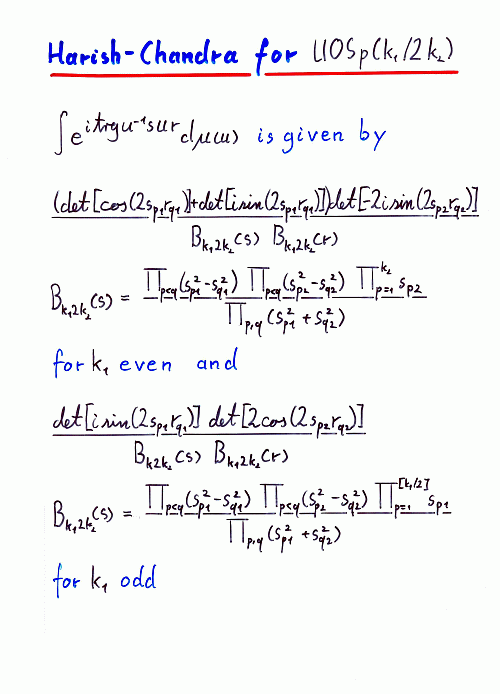 Harish-Chandra for UOSp(k₁/2k₂)
∫e^{i trg u⁻¹sur} dμ(u) is given by
(det[cos(2s_{p1}r_{q1})]+det[i sin(2s_{p1}r_{q1})])det[-2i sin(2s_{p2}r_{q2})]
B_{k₁2k₂}(s) B_{k₁2k₂}(r)
B_{k₁2k₂}(s) = ∏_{p<q}(s²_{p1}-s²_{q1}) ∏_{p<q}(s²_{p2}-s²_{q2}) ∏_{p=1}^{k₂} s_{p2}
∏_{p,q}(s²_{p1}+s²_{q2})
for k₁ even and
det[i sin(2s_{p1}r_{q1})] det[2cos(2s_{p2}r_{q2})]
B_{k2k₂}(s) B_{k₁2k₂}(r)
B_{k₁2k₂}(s) = ∏_{p<q}(s²_{p1}-s²_{q1}) ∏_{p<q}(s²_{p2}-s²_{q2}) ∏_{p=1}^{[k₁/2]} s_{p1}
∏_{p,q}(s²_{p1}+s²_{q2})
for k₁ odd